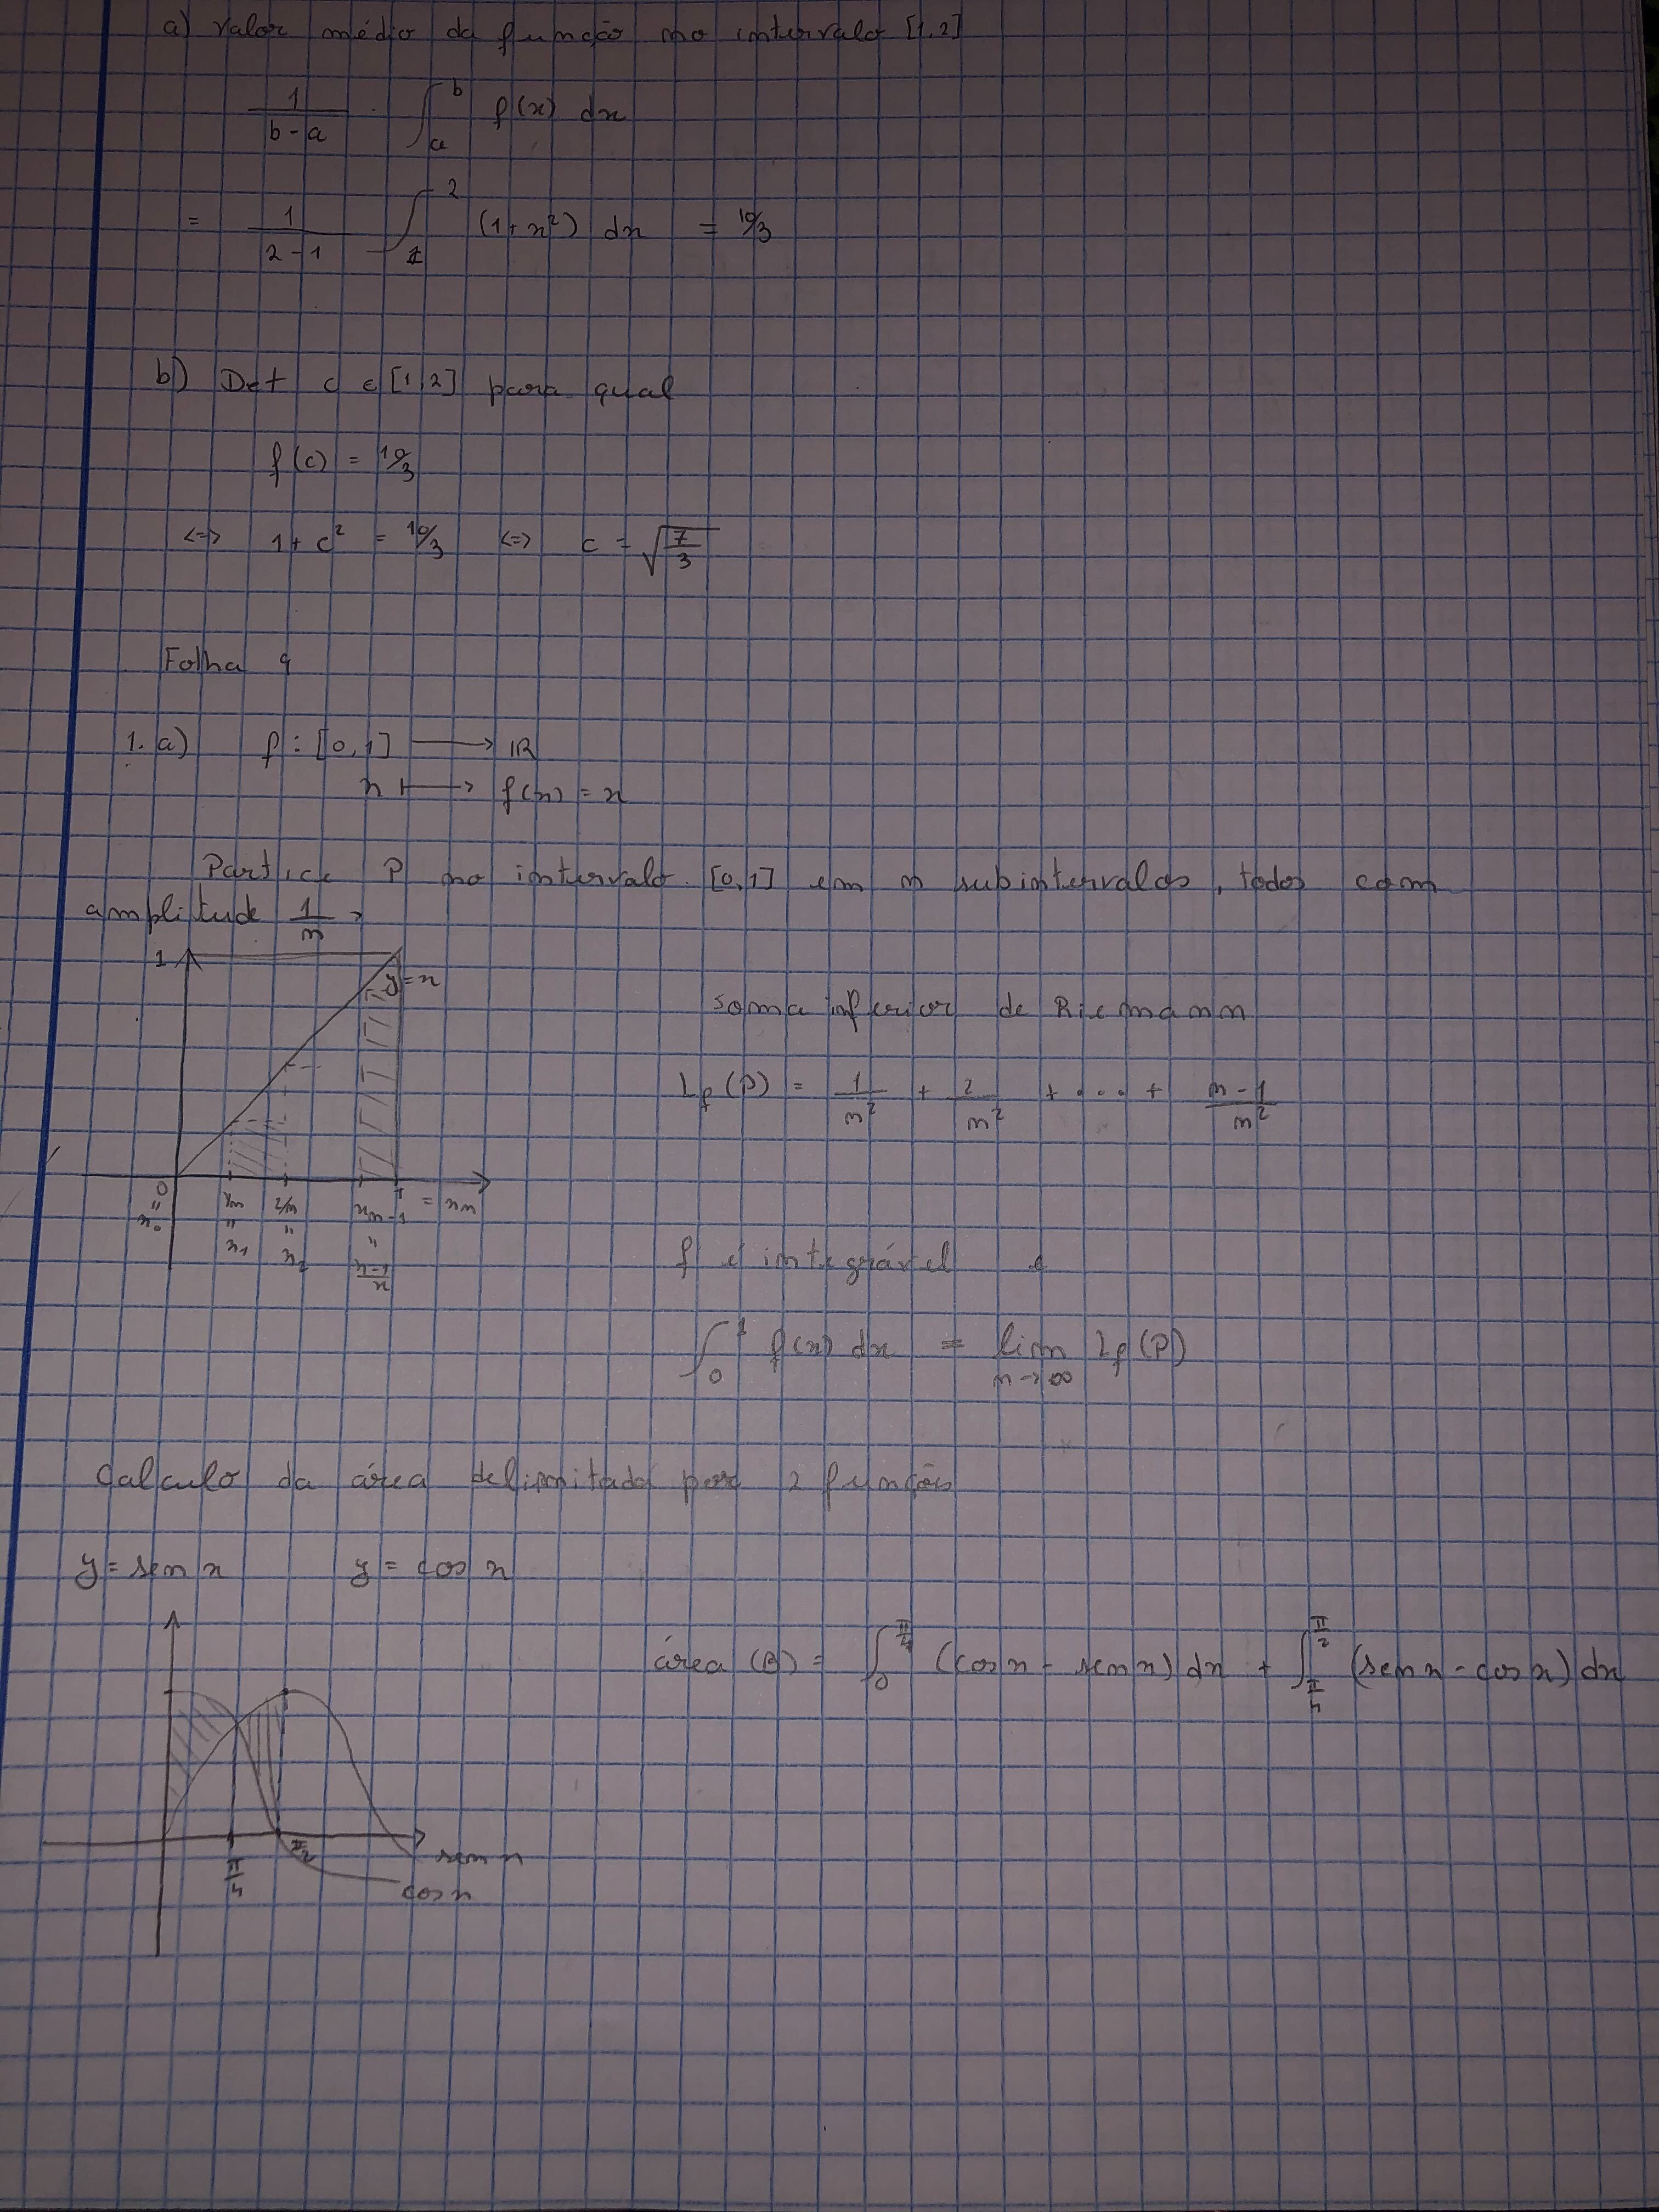 a) Valor médio da função no intervalo [1,2]
1/(b-a) · ∫_a^b f(x) dx
= 1/(2-1) ∫_1^2 (1+x²) dx = 10/3
b) Det c ∈ [1,2] para qual
f(c) = 10/3
<=> 1+c² = 10/3 <=> c = √(7/3)
Folha 9
1. a) f : [0,1] → IR
x ↦ f(x) = x
Partice P no intervalo [0,1] em n subintervalos, todos com
amplitude 1/n
1
y=x
soma inferior de Riemann
L_f(P) = 1/n² + 2/n² + ... + n-1/n²
0 1/n 2/n x_{n-1} 1 = x_n
" " " "
x_0 x_1 x_2 n-1/n
f é integrável e
∫_0^1 f(x) dx = lim_{n→∞} L_f(P)
Calculo da área delimitada por 2 funções
y = sen x y = cos x
área (B) = ∫_0^{π/4} (cos x - sen x) dx + ∫_{π/4}^{π/2} (sen x - cos x) dx
π/4 π/2
sen x
cos x